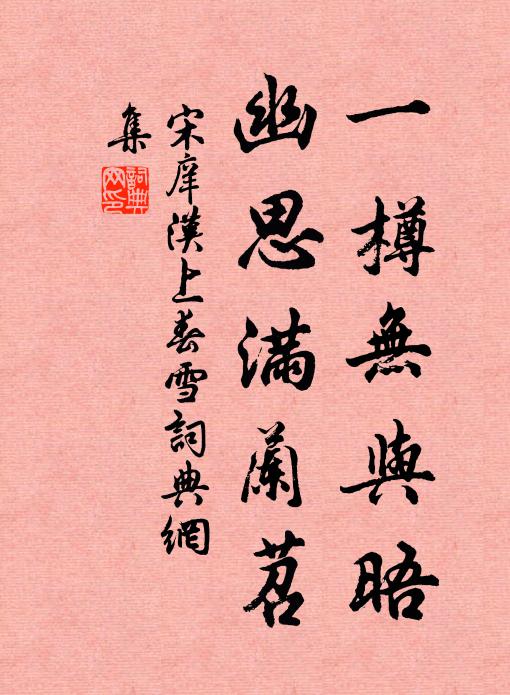 一樽無與晤
幽思滿蘭苕
宋庠漢上春雪詞典網
集
詞典网印